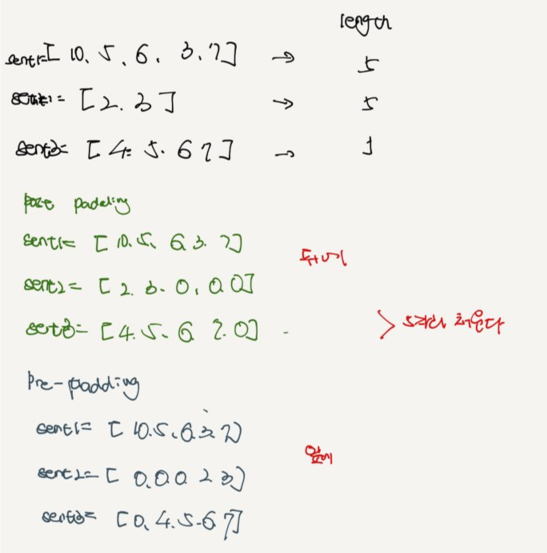 length
sent1=[ 10, 5, 6, 3, 7] → 5
= [2. 3] → 5
sent3= [4. 5. 6 7] →
post padding
sent1= [10. 5. 6. 3. 7] 뒤에
sent2= [2. 3. 0, 0, 0]
sent3= [4. 5. 6 7. 0] > 채운다
Pre-padding
sent1= [10. 5. 6. 3. 7]
sent2= [ 0, 0. 0 2 3] 앞에
sent3= [0, 4. 5. 6 7]